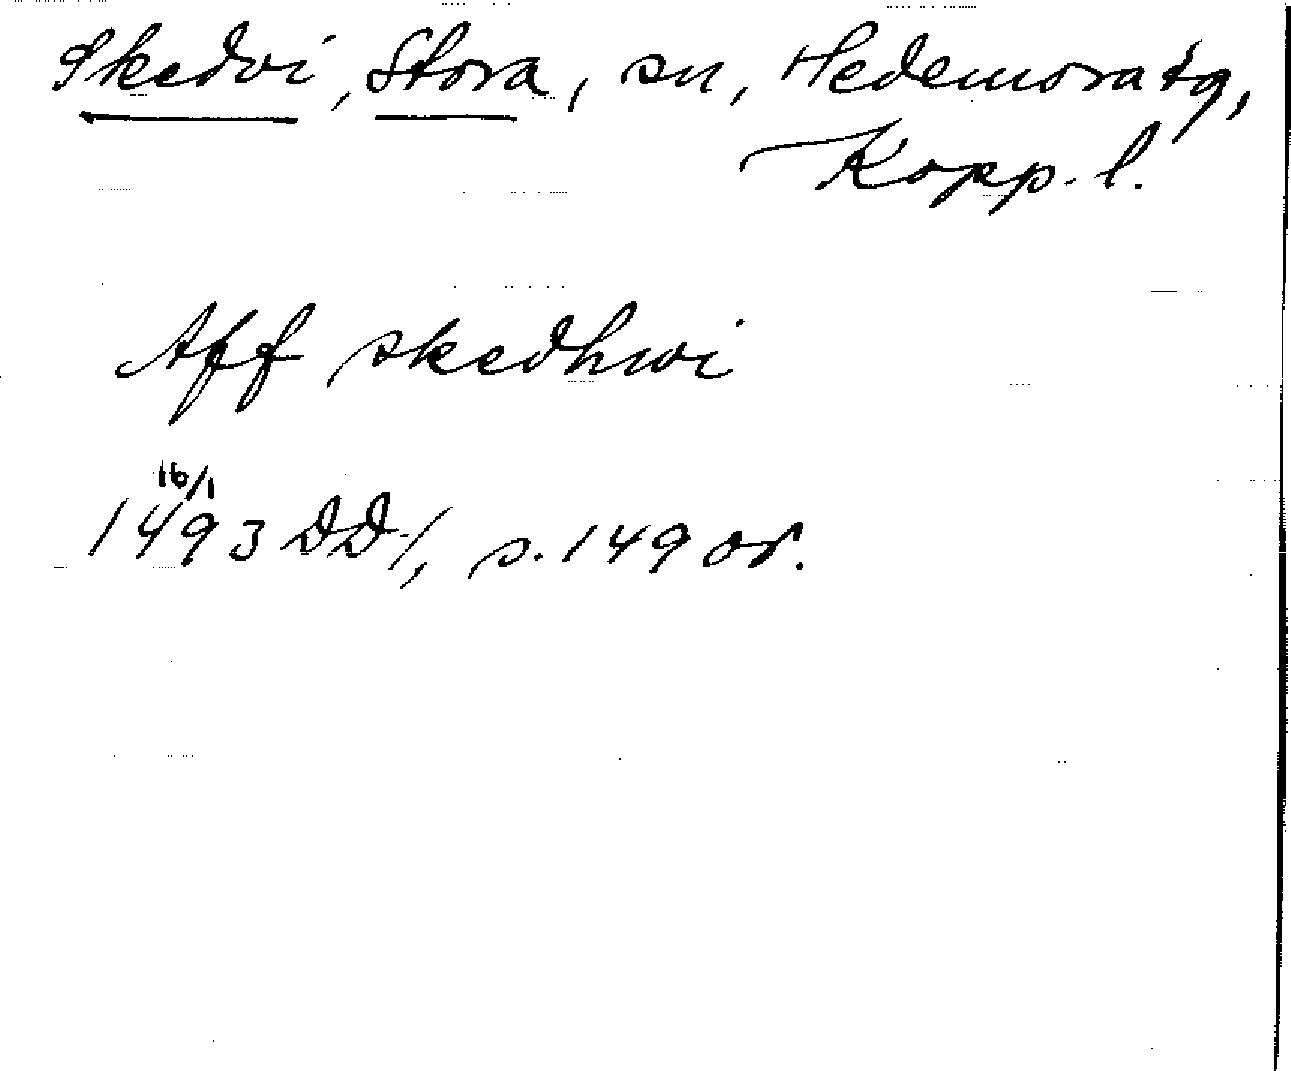 Skedvi, Stora, sn, Hedemora tg,
Kopp. l.
Aff skedhwi
16/1
1493 DD 1, s. 149 or.